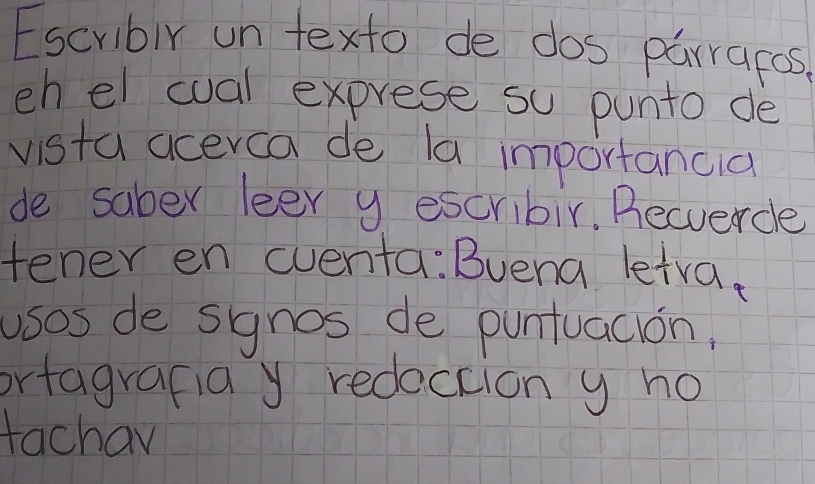 Escribir un texto de dos párrafos.
en el cual exprese su punto de
vista acerca de la importancia
de saber leer y escribir. Recuerde
tener en cuenta: Buena letra,
usos de signos de puntuación,
ortagrafia y redaccion y no
tachar